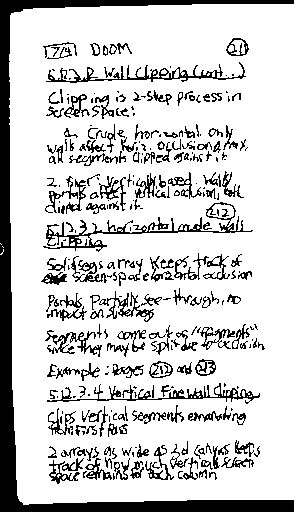 7/9 DOOM 211
5.12.3.2 Wall Clipping (cont..)
Clipping is 2-step process in
screen space:
1. Crude, horizontal only
walls affect horiz. occlusion array,
all segments clipped against it
2. finer, vertically based. Walls/
portals affect vertical occlusion, both
clipped against it
212
5.12.3.3 horizontal mode walls
Clipping
Solidsegs array keeps track of
screen-space horizontal occlusion
Portals, Partially see-through, no
impact on solidsegs
Segments come out as "fragments"
since they may be split due to occlusion
Example: Pages 212 and 213
5.12.3.4 Vertical Fine Wall Clipping
Clips vertical segments emanating
from first pass
2 arrays as wide as 3d canvas keeps
track of how much vertical screen
space remains for each column